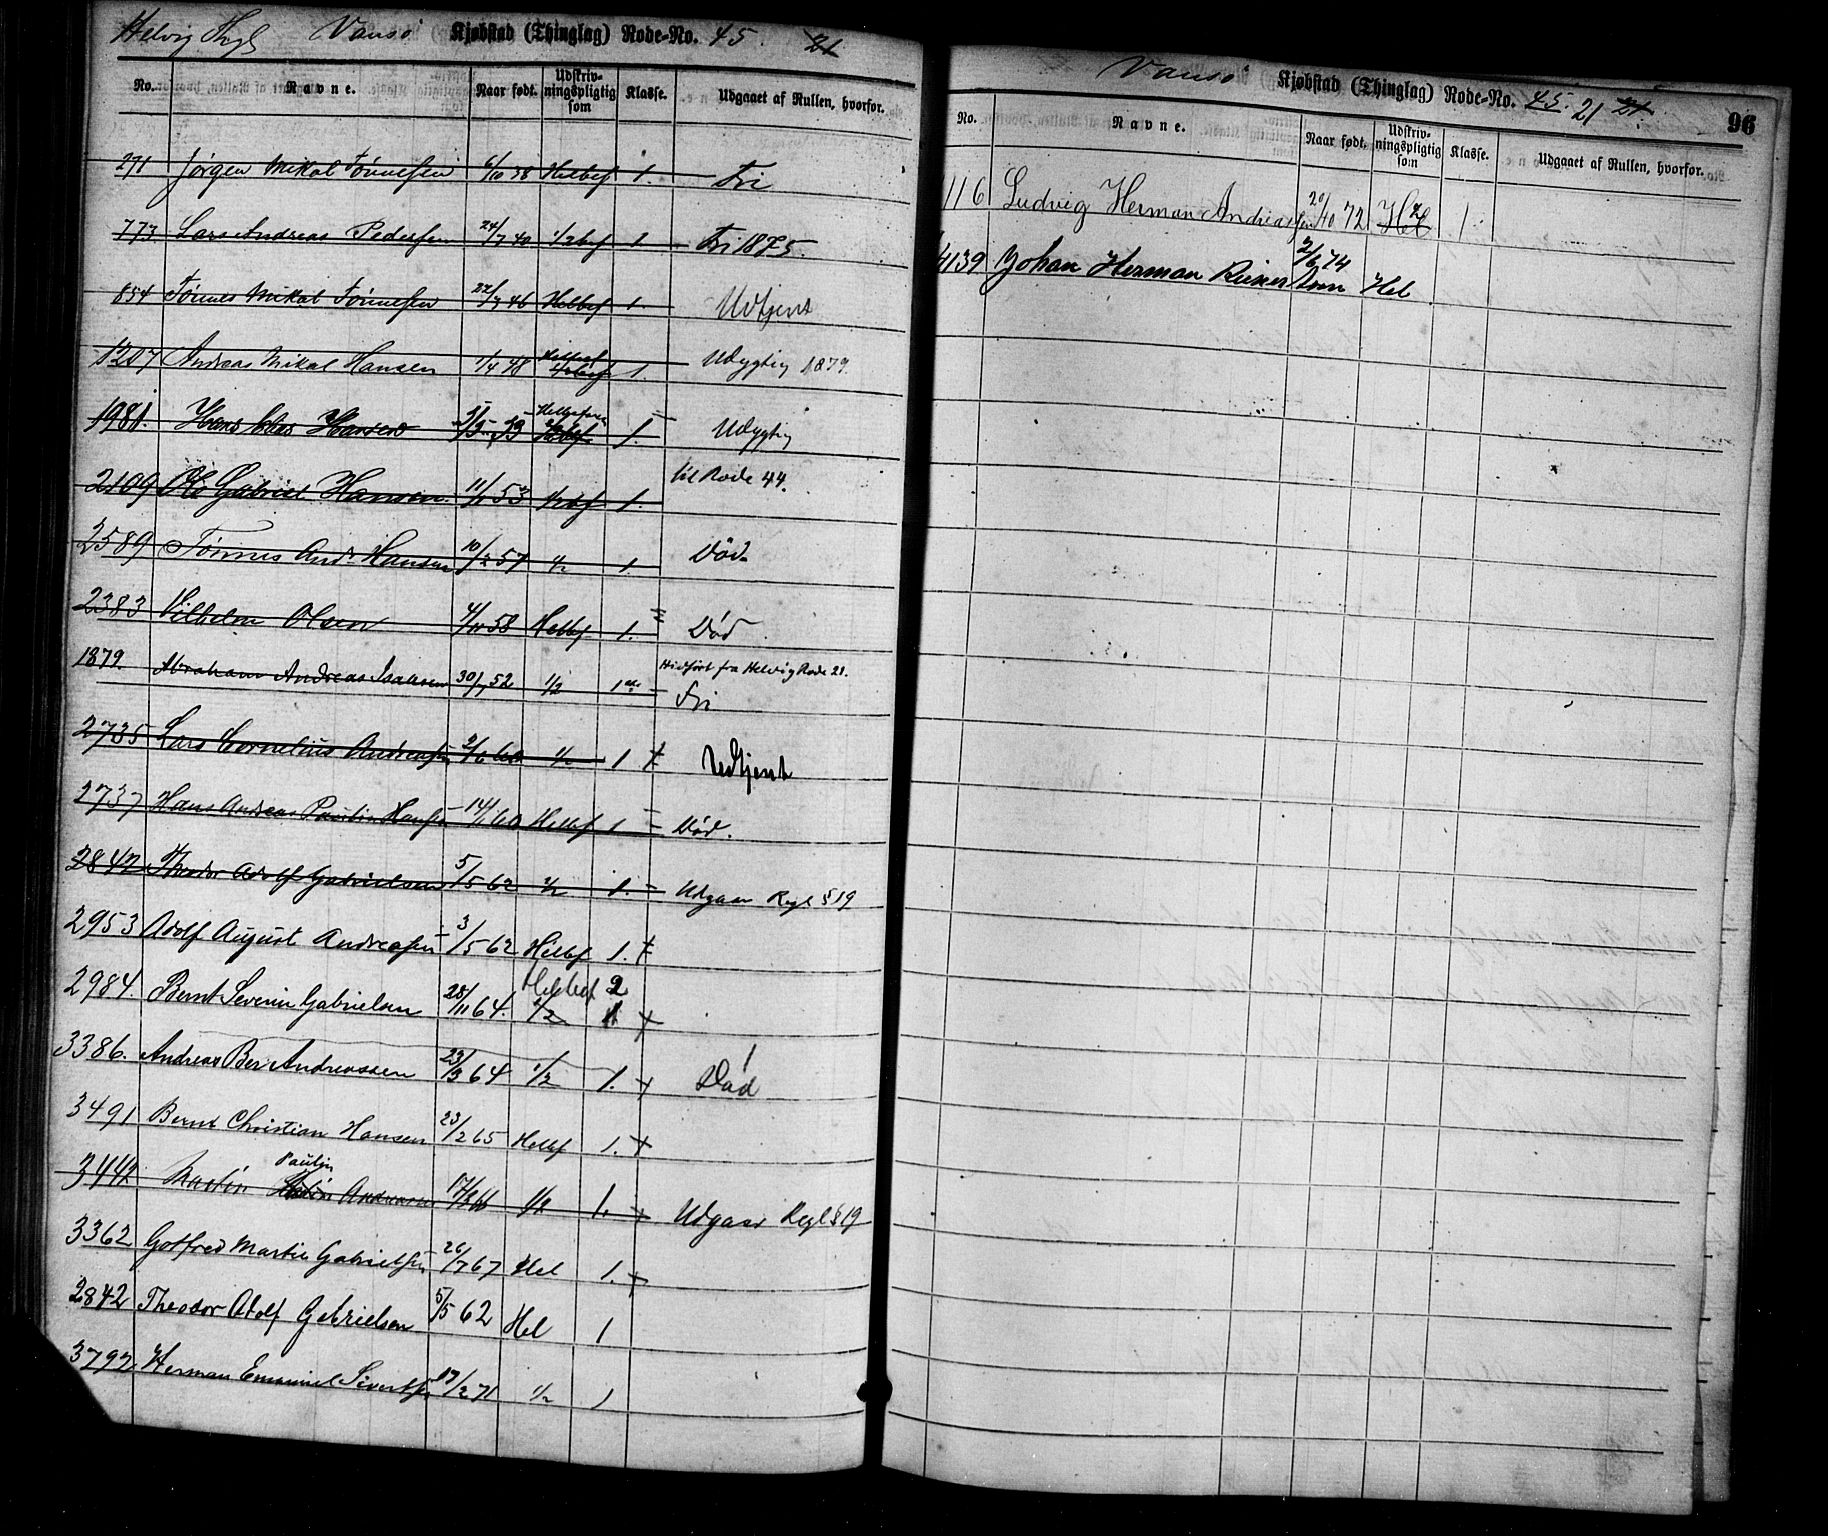 Helvig Thgl Vansø Kjøbstad (Thinglag) Rode-No. 45. 21
No. Navne. Naar født. Udskrivningspligtig som Klasse. Udgaaet af Rullen, hvorfor.
271 Jørgen Mikal Tønnesen 6/10 38 Helbef 1. Fri
773 Lars Andreas Pedersen 24/7 40 1/2bef 1 Fri 1875.
854 Tønnes Mikal Tønnesen 22/7 46 Helbef 1. Udtjent
1207 Andreas Mikal Hansen 1/4 48 Helbef 1/2bef 1. Udygtig 1879.
1981. Hans Hansen 53 1. Udygtig
2109 Ole Gabriel Hansen 53 1/2bef 1. til Rode 44.
2589 Tønnes Andr Hansen 10/2 57 1/2 1. Død
2383 Vilhelm Olsen 4/11 58 Helbf 1. Død
1879. Abraham Andreas Isaksen 30/7 52 1/2 1 Hidført fra Helvig Rode 21. Fri
2735 Lars Cornelius Andreassen 2/6 60 1/2 1 Udtjent
2737 Hans Andreas Paulin Hansen 14/1 60 Helbf 1 Død.
2842 Theodor Adolf Gabrielsen 5/5 62 1/2 1. Udgaar Regl § 19
2953 Adolf August Andreasen 3/5 62 Helbf 1.
2984. Bernt Severin Gabrielsen 28/11 64. Helbef 1/2 2 1
3386. Andreas Ber Andreassen 23/3 64 1/2 1. Død
3491 Bernt Christian Hansen 23/2 65 Helbf 1.
3442 Martin Paulin Andreasen 17/2 66 1/2 1. Udgaar Regl § 19
3362 Gotfred Martin Gabrielsen 26/7 67 Hel 1.
2842 Theodor Adolf Gabrielsen 5/5 62 Hel 1
3792 Herman Emanuel Sivertsen 17/2 71 1/2 1
Vansø Kjøbstad (Thinglag) Rode-No. 45. 21 21. 96
No. Navne. Naar født. Udskrivningspligtig som Klasse. Udgaaet af Rullen, hvorfor.
116 Ludvig Herman Andreassen 20/10 72 Hel 1
4139 Johan Herman Reinertsen 2/6 74 Hel